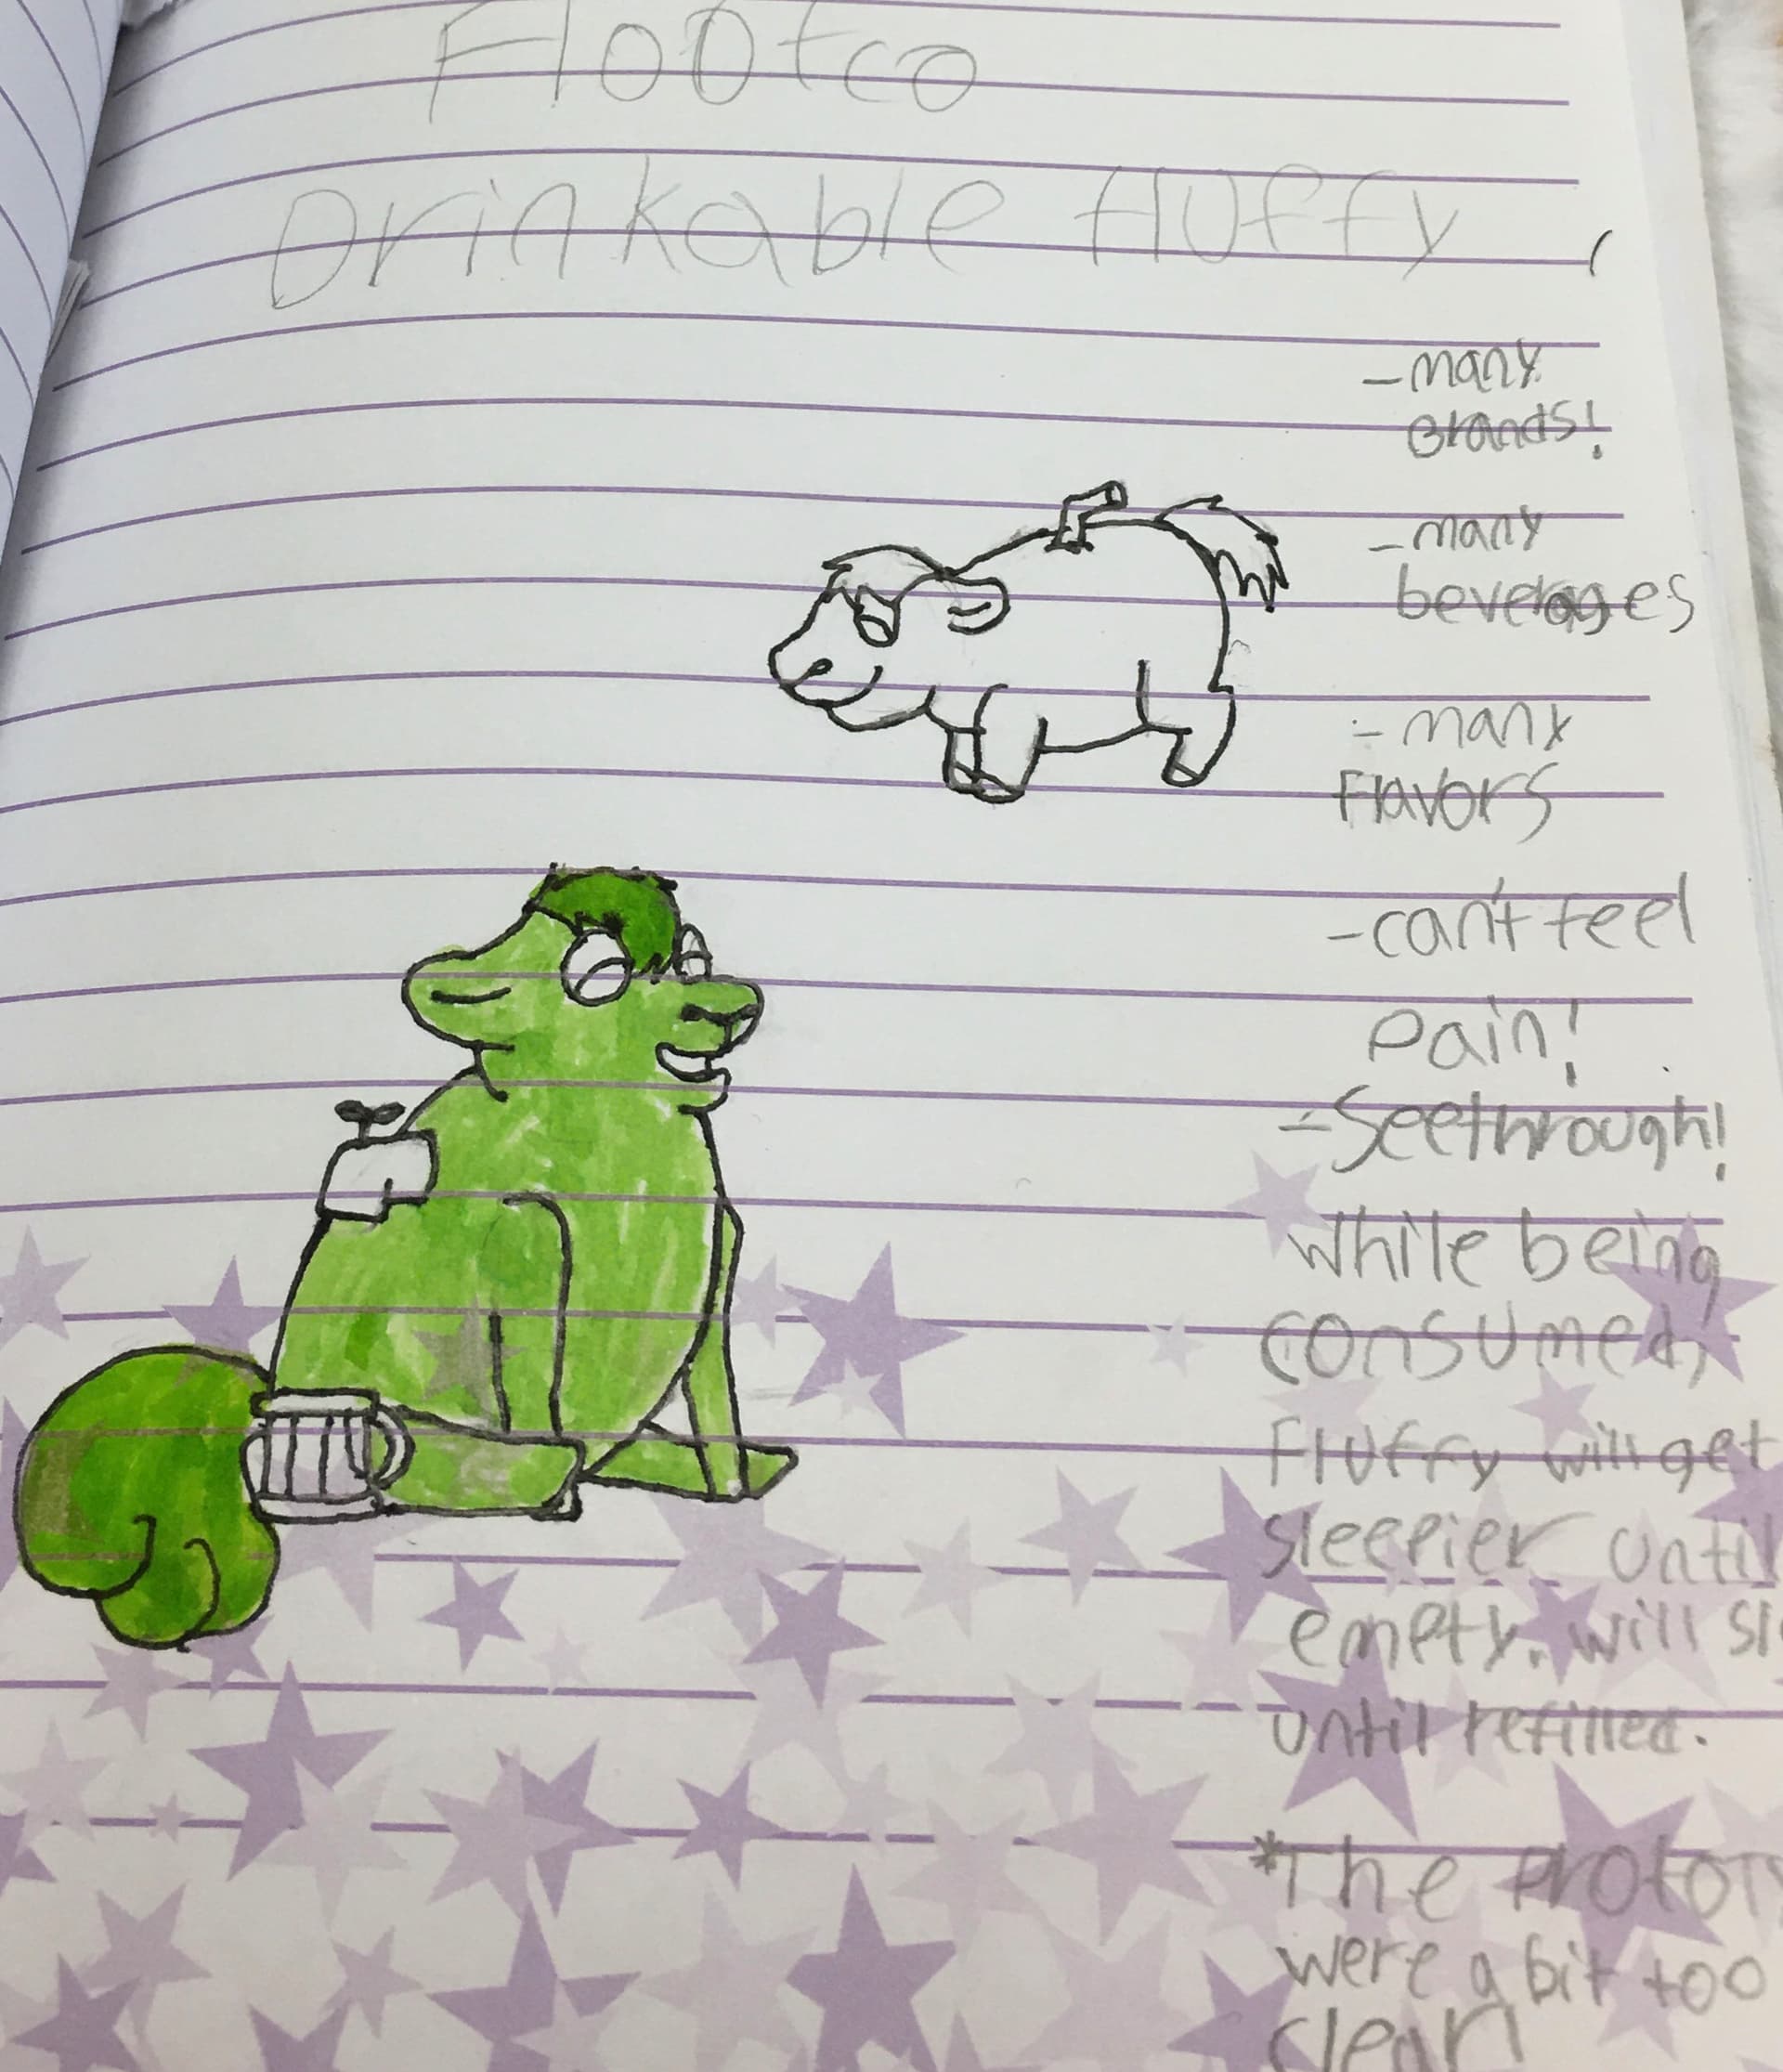 Flootco
Drinkable fluffy
-many
Brands!
-many
beverages
-many
Flavors
-can't feel
Pain!
-Seethrough!
While being
consumed,
Fluffy will get
sleepier until
empty. will
until refilled.
*The
were a bit too
clean